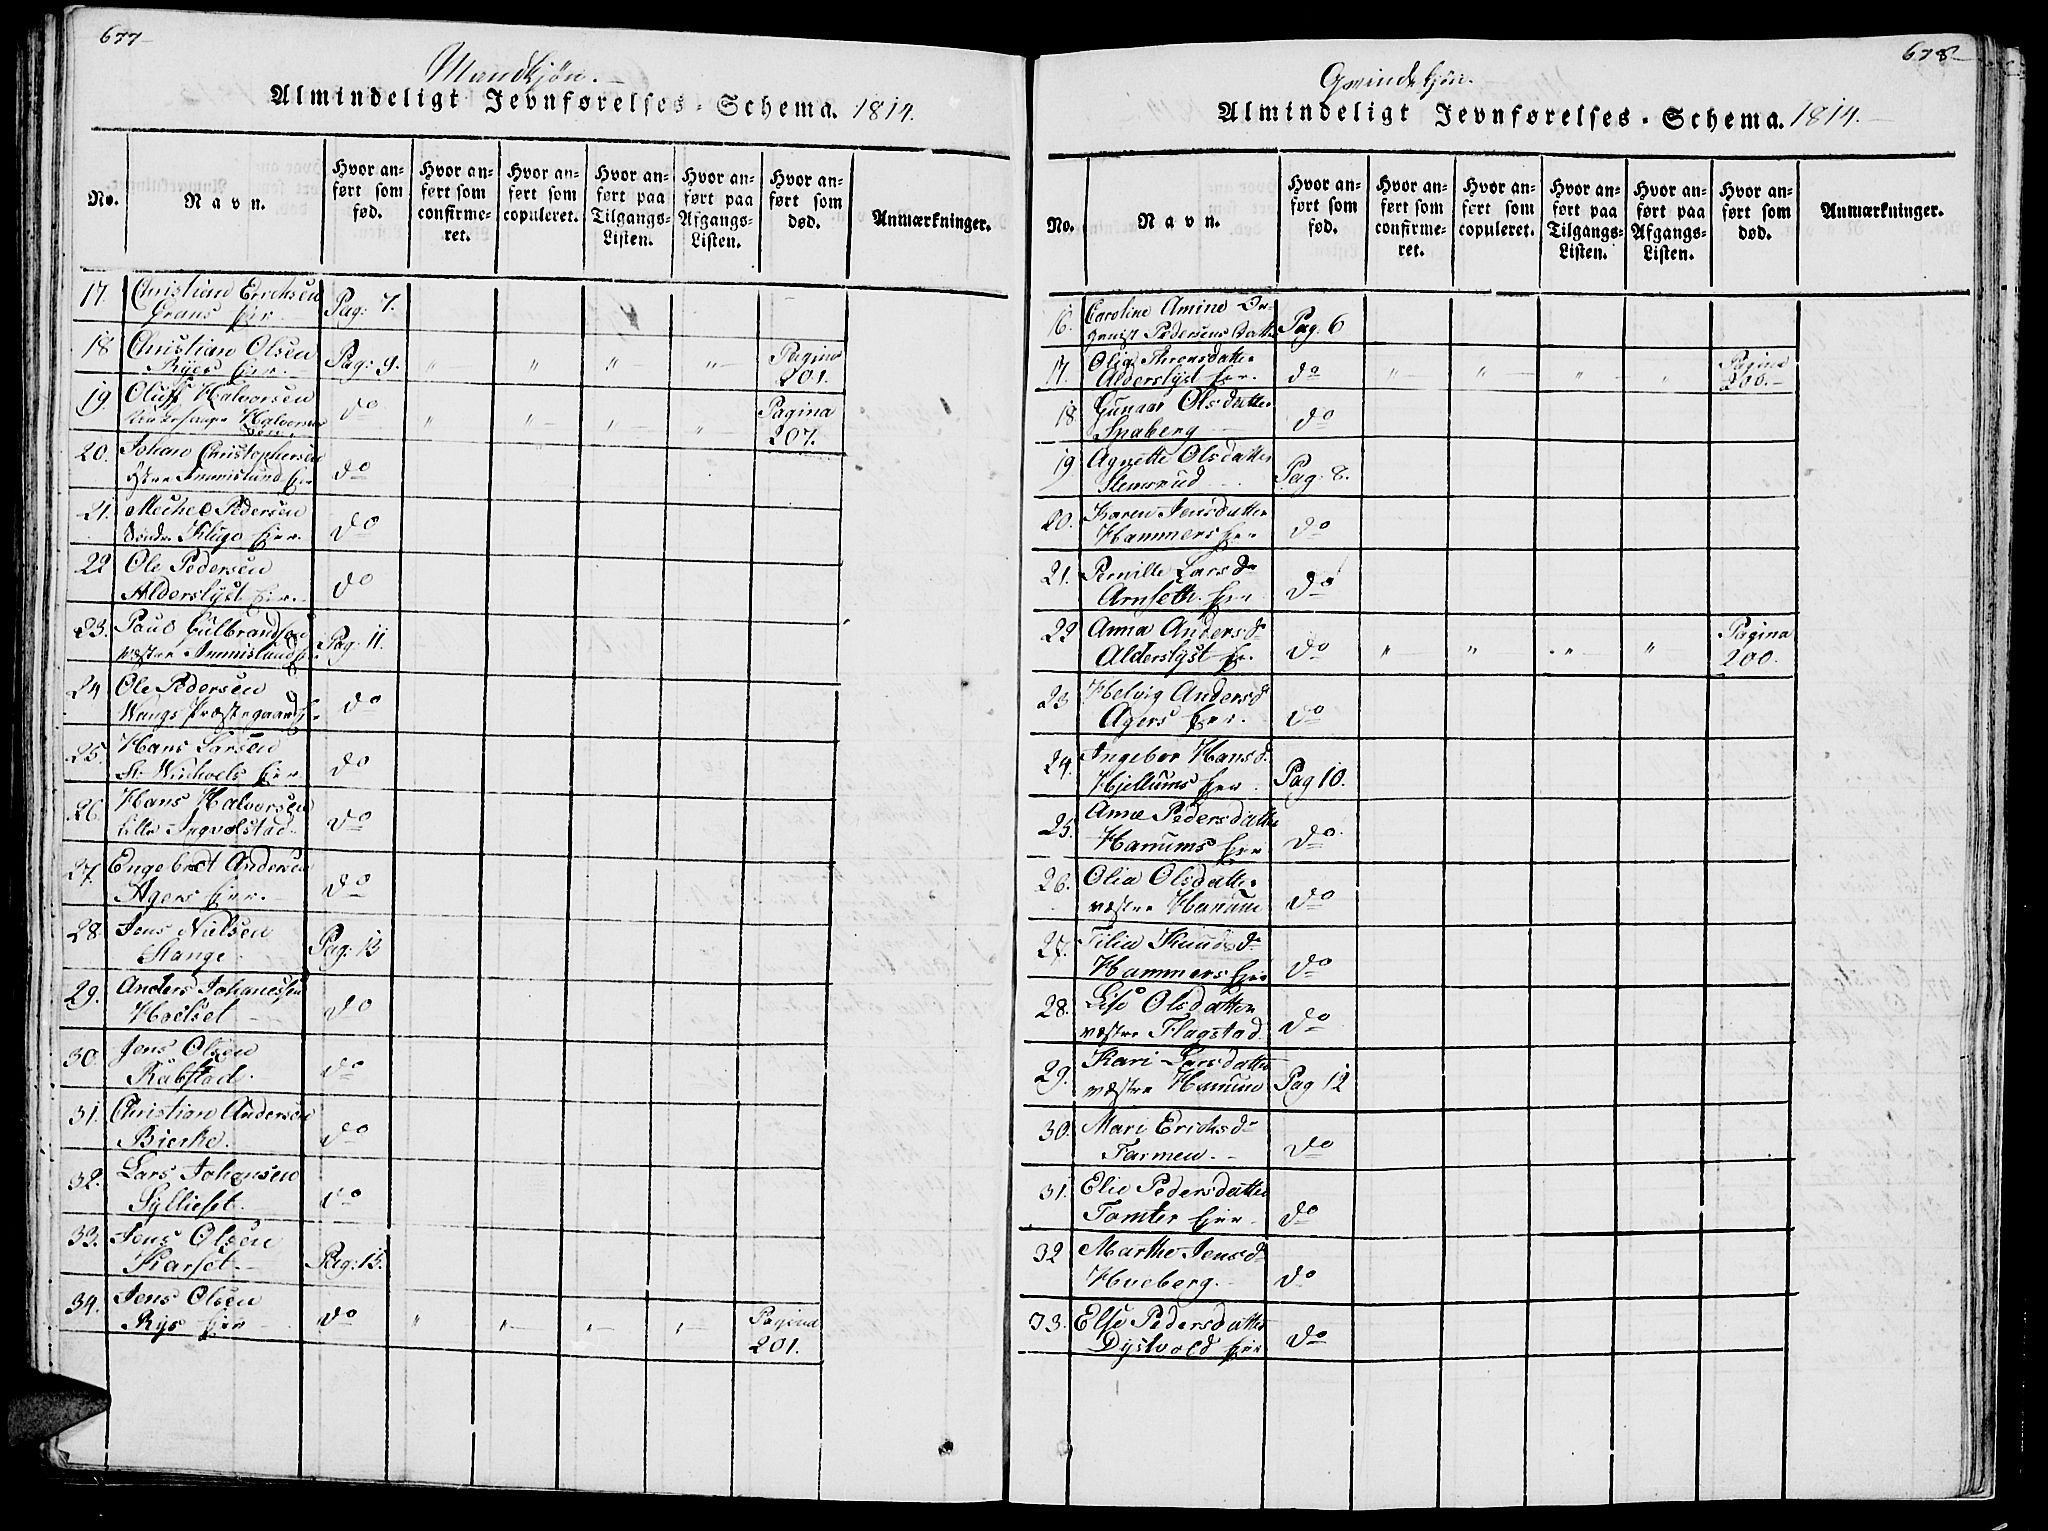 677
Mandkjøn.
Almindeligt Jevnførelses-Schema. 1814.
No.
Navn.
Hvor anført som fød.
Hvor anført som confirmeret.
Hvor anført som copuleret.
Hvor anført paa Tilgangs-Listen.
Hvor anført paa Afgangs-Listen.
Hvor anført som død.
Anmærkninger.
17. Christian Erichsen
Grans Eier. Pag: 7.
18 Christian Olsen Pagina
Ryes Eier. Pag: 9. " " " 201.
19. Oluff Halvorsen do Pagina
Halvorsen " " " " 207.
20. Johan Christophersen
østre Immislund Eier do
21. Michel Pedersen
Søndr Kluge Eier. do
22 Ole Pedersen
Alderslyst Eier. do
23. Poul Gulbrandsen
væstre Immislund Pag: 11.
24 Ole Pedersen
Wangs Præstegaard do
25. Hans Larsen
Eier do
26. Hans Halvorsen
lille Ingvolstad do
27. Engebret Andersen
Agers Eier. do
28. Jens Nielsen
Stange. Pag: 13
29. Anders Johanessen
Hoelset do
30. Jens Olsen
Rabstad. do
31. Christian Andersen
Bierke. do
32. Lars Johansen
Syllieset. do
33. Jens Olsen
Karset. Pag: 13.
34. Jens Olsen do Pagina
Rys Eier " " " " 201.
678
Qvindekjøn.
Almindeligt Jevnførelses-Schema. 1814.
No.
Navn.
Hvor anført som fød.
Hvor anført som confirmeret.
Hvor anført som copuleret.
Hvor anført paa Tilgangs-Listen.
Hvor anført paa Afgangs-Listen.
Hvor anført som død.
Anmærkninger.
16. Caroline Amine Or-
ganist Pedersens Datter Pag. 6
17. Olia Thronsdatter Pagina
Alderslyst Eier. do " " " " 200.
18 Gunar Olsdatter
Snaberg do
19 Agnette Olsdatter
Slemsrud Pag: 8.
20. Karen Jensdatter
Hammers Eier do
21. Pernille Larsdr
Arnseth Eier do
22 Anna Andersd. Pagina
Alderslyst Eier do " " " " 200.
23 Helvig Andersd
Agers Eier. do
24. Ingebor Hansd.
Hjellums Eier. Pag 10.
25. Anne Pedersdatter
Hanums Eier do
26. Olia Olsdatter
væstre Hanum do
27. Tilia Knudsd
Hammers Eier do
28. Lise Olsdatter
væstre Flagstad do
29. Kari Larsdatter
væstre Hanum Pag 12
30. Mari Erichsd
Farmen. do
31. Elie Pedersdatter
Tomter Eier do
32 Marthe Jensd
Hveberg. do
33. Else Pedersdatter
Dystvold Eier do